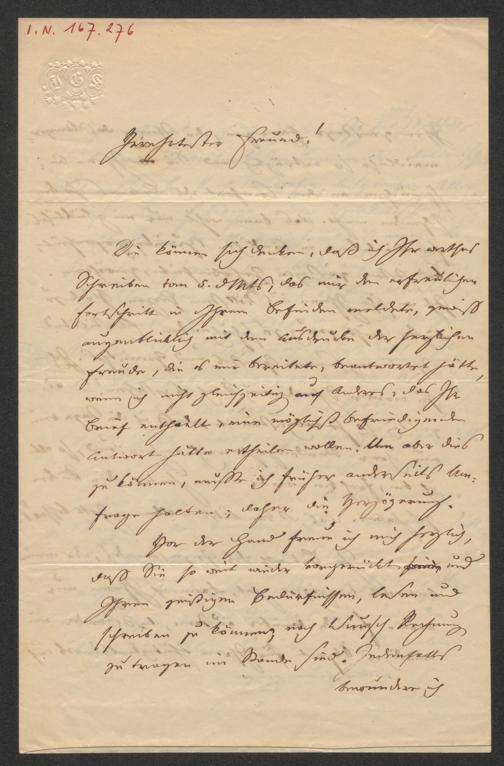 I.N. 167.276
Verehrtester Freund!
Sie können sich denken, daß ich Ihr werthes
Schreiben vom 5. d Mts, das mir den erfreulichen
Fortschritt in Ihrem Befinden meldete, gewiß
augenblicklich mit dem Ausdrucke der herzlichen
Freude, die es mir bereitete, beantwortet hätte,
wenn ich nicht gleichzeitig auch Anderes, das Ihr
Brief enthält, eine möglichst befriedigende
Antwort hätte ertheilen wollen. Um aber dies
zu können, mußte ich früher anderseits Um=
frage halten; daher die Verzögerung.
Vor der Hand freue ich mich herzlich,
daß Sie so weit wieder vorgerückt und
Ihren geistigen Bedürfnissen, lesen und
schreiben zu können, nach Wunsch Rechnung
zu tragen im Stande sind. Jedenfalls
bewundere ich